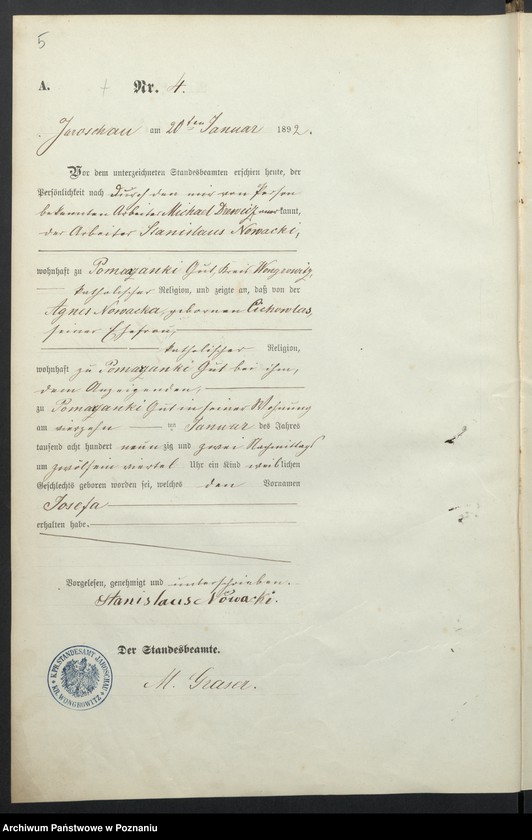 5
A. Nr. 4.
Jaroschau am 20ten Januar 1892.
Vor dem unterzeichneten Standesbeamten erschien heute, der
Persönlichkeit nach durch den mir von Person
bekannten Arbeiter Michael anerkannt,
der Arbeiter Stanislaus Nowacki,
wohnhaft zu Pomarzanki Gut, Kreis Wongrowitz,
katholischer Religion, und zeigte an, daß von der
Agnes Nowacka, geborenen Cichowlas,
seiner Ehefrau,
katholischer Religion,
wohnhaft zu Pomarzanki Gut bei ihm,
dem Anzeigenden,
zu Pomarzanki Gut in seiner Wohnung
am vierzehn ten Januar des Jahres
tausend acht hundert neunzig und zwei Nachmittags
um zwölf ein viertel Uhr ein Kind weiblichen
Geschlechts geboren worden sei, welches den Vornamen
Josefa
erhalten habe.
Vorgelesen, genehmigt und unterschrieben.
Stanislaus Nowacki.
Der Standesbeamte.
M. Graser.
K. PR. STANDESAMT JAROSCHAU
KR. WONGROWITZ
Archiwum Państwowe w Poznaniu